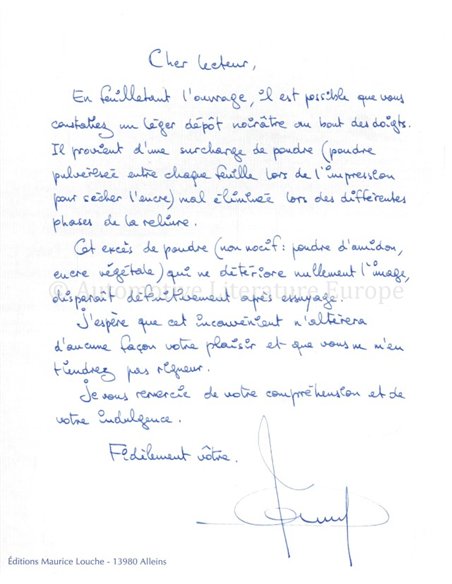 Cher lecteur,
En feuilletant l'ouvrage, il est possible que vous
constatiez un léger dépôt noirâtre au bout des doigts.
Il provient d'une surcharge de poudre (poudre
pulvérisée entre chaque feuille lors de l'impression
pour sécher l'encre) mal éliminée lors des différentes
phases de la reliure.
Cet excès de poudre (non nocif : poudre d'amidon,
encre végétale) qui ne détériore nullement l'image,
© Automotive Literature Europe
disparaît définitivement après essuyage.
J'espère que cet inconvénient n'altèrera
d'aucune façon votre plaisir et que vous ne m'en
tiendrez pas rigueur.
Je vous remercie de votre compréhension et de
votre indulgence.
Fidèlement vôtre.
Éditions Maurice Louche - 13980 Alleins